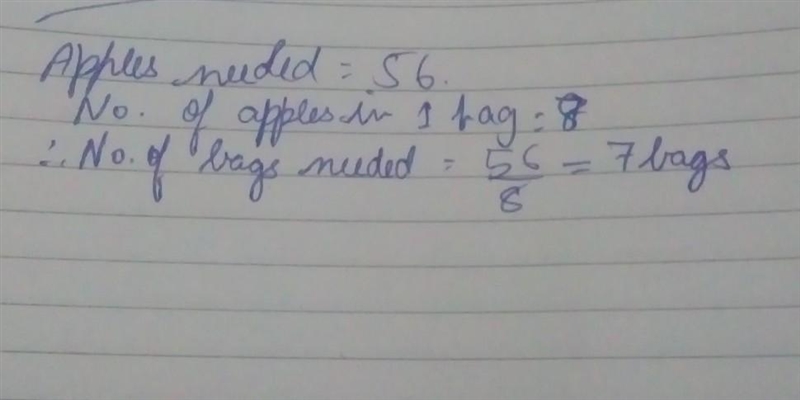 Apples needed = 56.
No. of apples in 1 bag = 8
∴ No. of bags needed = 56/8 = 7 bags